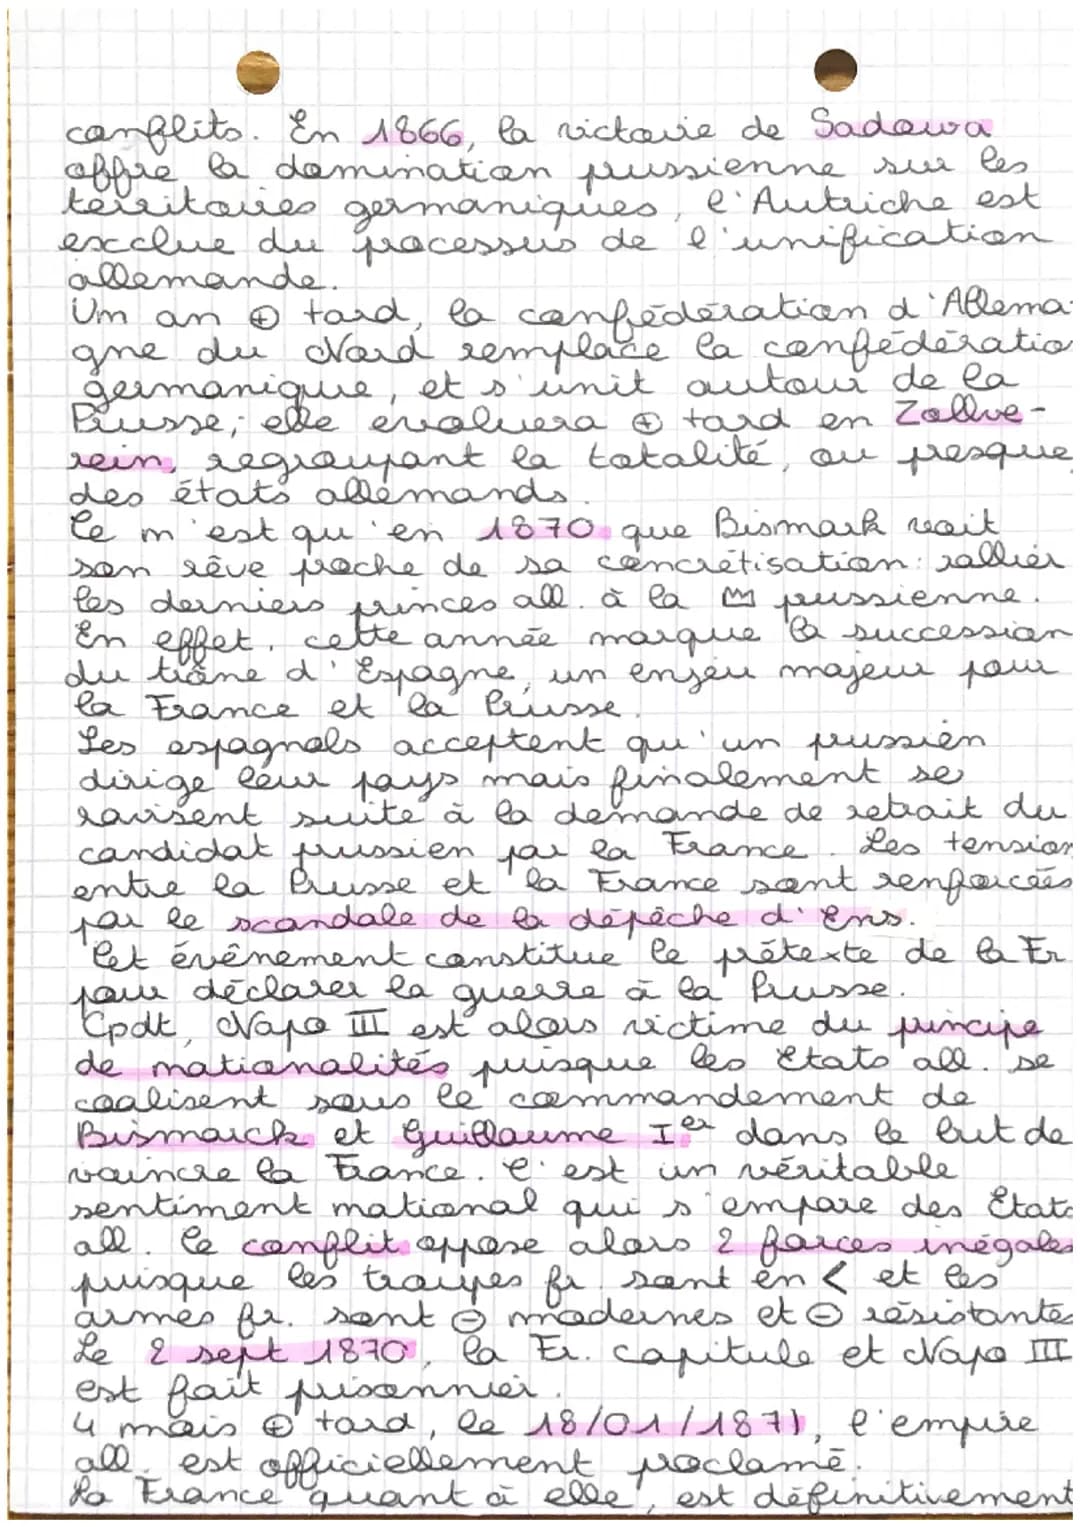 conflits. En 1866, la victoire de Sadowa
offre la domination prussienne sur les
territoires germaniques, l'Autriche est
exclue du processus de l'unification
allemande.
Um an ⊕ tard, la confédération d'Allema-
gne du Nord remplace la confédératio
germanique, et s'unit autour de la
Prusse; elle evoluera ⊕ tard en Zollve-
rein, regroupant la totalité, ou presque
des états allemands.
Ce n'est qu'en 1870 que Bismark voit
son rêve proche de sa concrétisation: rallier
les derniers princes all. à la 👑 prussienne.
En effet, cette année marque la succession
du trône d'Espagne, un enjeu majeur pour
la France et la Prusse.
Les espagnols acceptent qu'un prussien
dirige leur pays mais finalement se
ravisent suite à la demande de retrait du
candidat prussien par la France. Les tension
entre la Prusse et la France sont renforcées
par le scandale de la dépêche d'Ens.
Cet évênement constitue le prétexte de la Fr
pour déclarer la guerre à la Prusse.
Cpdt, Napo III est alors victime du principe
de nationalités puisque les Etats all. se
coalisent sous le commandement de
Bismarck et Guillaume Ier dans le but de
vaincre la France. C'est un véritable
sentiment national qui s'empare des Etats
all. Le conflit oppose alors 2 forces inégales
puisque les troupes fr. sont en < et les
armes fr. sont ⊖ modernes et ⊖ résistantes
Le 2 sept 1870, la Fr. capitule et Napo III
est fait prisonnier.
4 mois ⊕ tard, le 18/01/1871, l'empire
all. est officiellement proclamé.
La France quant à elle, est définitivement